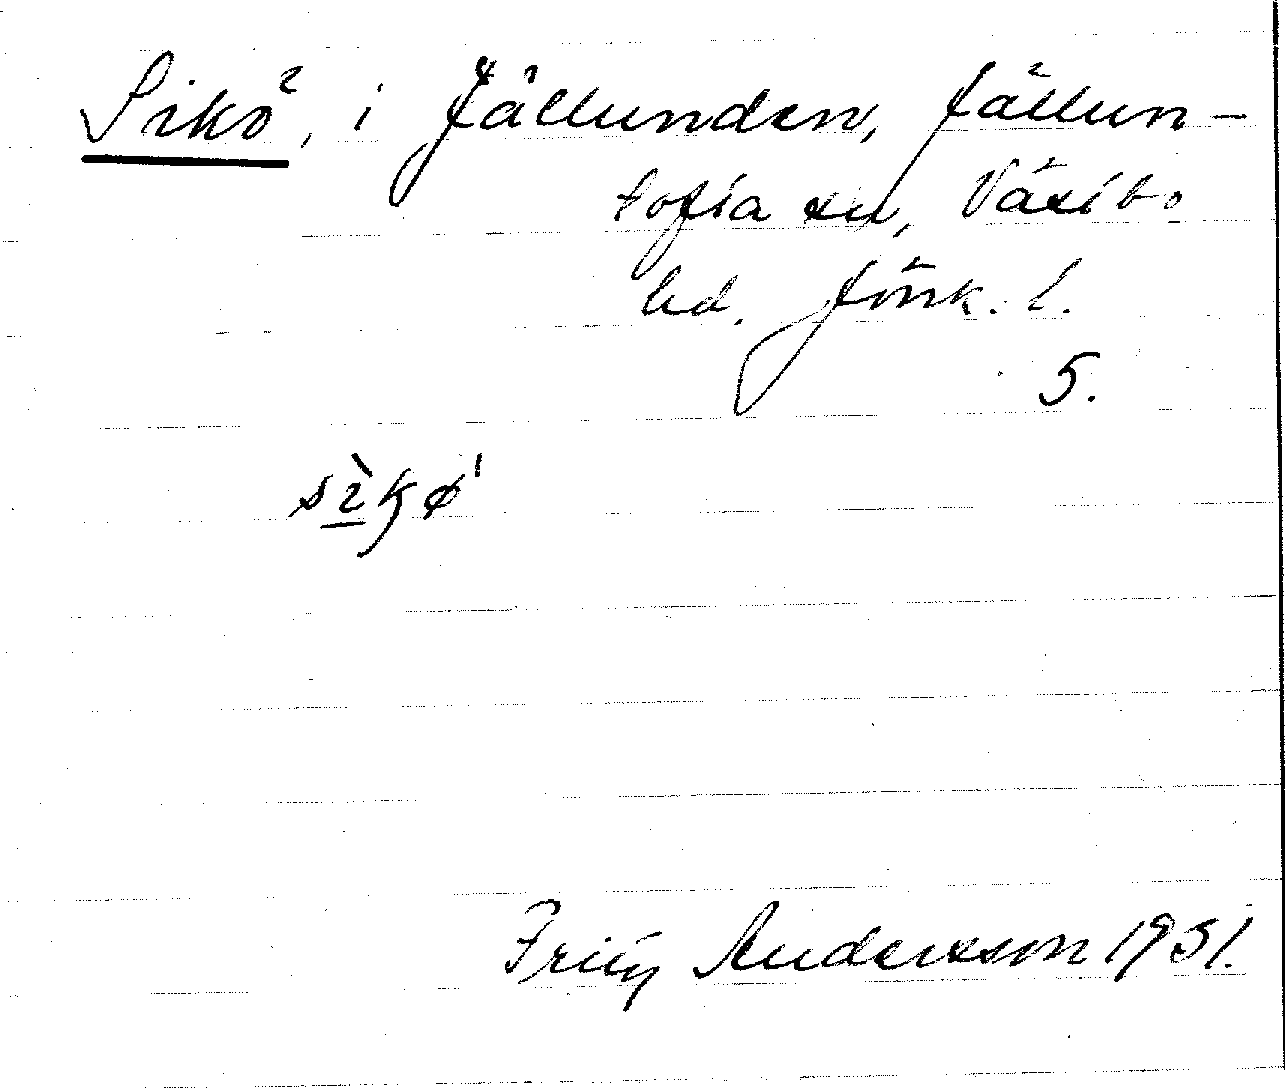 Sikö, i Fällunden, Fällun-
tofta sn, Västbo
hd. Jönk. l.
5.
Fritz Andersson 1931.